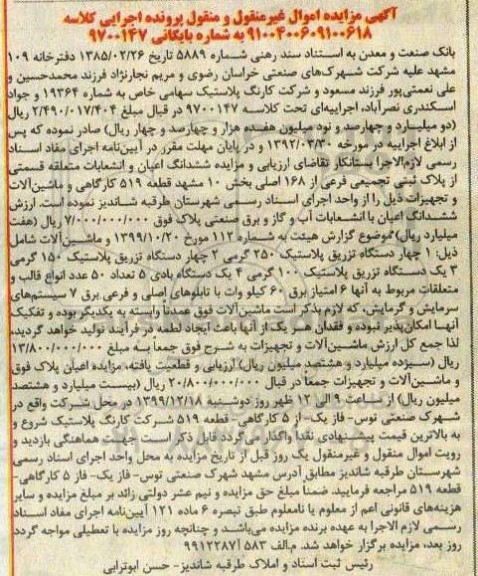 آگهی مزایده اموال غیرمنقول و منقول پرونده اجرایی کلاسه
۹۱۰۰۴۰۰۶۰۹۱۰۰۶۱۸ به شماره بایگانی ۹۷۰۰۱۴۷
بانک صنعت و معدن به استناد سند رهنی شماره ۵۸۸۹ تاریخ ۱۳۸۵/۰۲/۲۶ دفترخانه ۱۰۹
مشهد علیه شرکت شهرک‌های صنعتی خراسان رضوی و مریم نجارنژاد فرزند محمدحسین و
علی نعمتی‌پور فرزند مسعود و شرکت کارنگ پلاستیک سهامی خاص به شماره ۱۹۳۶۴ و جواد
اسکندری نصرآباد، اجراییه‌ای تحت کلاسه ۹۷۰۰۱۴۷ در قبال مبلغ ۲/۴۹۰/۰۱۷/۴۰۴ ریال
(دو میلیارد و چهارصد و نود میلیون هفده هزار و چهارصد و چهار ریال) صادر نموده که پس
از ابلاغ اجراییه در مورخه ۱۳۹۲/۰۳/۳۰ و در پایان مهلت مقرر در آیین‌نامه اجرای مفاد اسناد
رسمی لازم‌الاجرا بستانکار تقاضای ارزیابی و مزایده ششدانگ اعیان و انشعابات متعلقه قسمتی
از پلاک ثبتی تجمیعی فرعی از ۱۶۸ اصلی بخش ۱۰ مشهد قطعه ۵۱۹ کارگاهی و ماشین‌آلات
و تجهیزات ذیل را از واحد اجرای اسناد رسمی شهرستان طرقبه شاندیز نموده است. ارزش
ششدانگ اعیان با انشعابات آب و گاز و برق صنعتی پلاک فوق ۷/۰۰۰/۰۰۰/۰۰۰ ریال (هفت
میلیارد ریال) موضوع گزارش هیئت به شماره ۱۱۲ مورخ ۱۳۹۹/۱۰/۲۰ و ماشین‌آلات شامل
ذیل: ۱ چهار دستگاه تزریق پلاستیک ۲۵۰ گرمی ۲ چهار دستگاه تزریق پلاستیک ۱۵۰ گرمی
۳ یک دستگاه تزریق پلاستیک ۱۰۰ گرمی ۴ یک دستگاه بادی ۵ تعداد ۵۰ عدد انواع قالب و
متعلقات مربوط به آنها ۶ امتیاز برق ۶۰ کیلو وات با تابلوهای اصلی و فرعی برق ۷ سیستم‌های
سرمایش و گرمایش، که لازم بذکر است ماشین‌آلات فوق عمدتاً وابسته به یکدیگر بوده و تفکیک
آنها امکان‌پذیر نبوده و فقدان هسر یک از آنها باعث ایجاد لطمه در فرآیند تولید خواهد گردید،
لذا جمع کل ارزش ماشین‌آلات و تجهیزات به شرح فوق جمعاً به مبلغ ۱۳/۸۰۰/۰۰۰/۰۰۰
ریال (سیزده میلیارد و هشتصد میلیون ریال) ارزیابی و قطعیت یافته، مزایده اعیان پلاک فوق
و ماشین‌آلات و تجهیزات جمعاً در قبال ۲۰/۸۰۰/۰۰۰/۰۰۰ ریال (بیست میلیارد و هشتصد
میلیون ریال) از ساعت ۹ الی ۱۲ ظهر روز دوشنبه ۱۳۹۹/۱۲/۱۸ در محل شرکت واقع در
شهرک صنعتی توس- فاز یک- از ۵ کارگاهی- قطعه ۵۱۹ شرکت کارنگ پلاستیک شروع و
به بالاترین قیمت پیشنهادی نقداً واگذار می‌گردد قابل ذکر است جهت هماهنگی بازدید و
رویت اموال منقول و غیرمنقول یک روز قبل از تاریخ مزایده به محل واحد اجرای اسناد رسمی
شهرستان طرقبه شاندیز مطابق آدرس مشهد شهرک صنعتی توس- فاز یک- فاز ۵ کارگاهی-
قطعه ۵۱۹ مراجعه فرمایید. ضمناً مبلغ حق مزایده و نیم عشر دولتی زائد بر مبلغ مزایده و سایر
هزینه‌های قانونی اعم از معلوم یا نامعلوم طبق تبصره ۶ ماده ۱۲۱ آیین‌نامه اجرای مفاد اسناد
رسمی لازم الاجرا به عهده برنده مزایده می‌باشد و چنانچه روز مزایده با تعطیلی مواجه گردد
روز بعد، مزایده برگزار خواهد شد. م.الف ۵۸۳ آ۹۹۱۲۲۸۷
رئیس ثبت اسناد و املاک طرقبه شاندیز- حسن ابوترابی